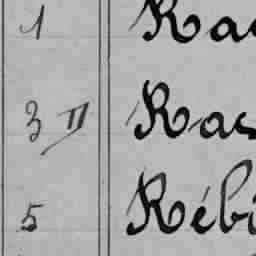 1 Ra
3 II Rac
5 Rébi